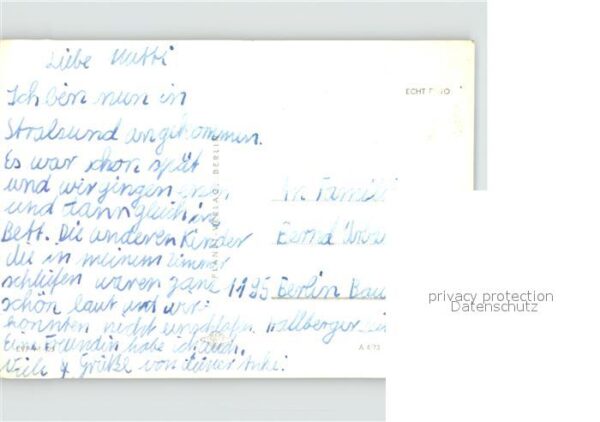 Liebe Mutti
ECHT FOTO
Ich bin nun in
Stralsund angekommen.
Es war schon spät
und wir gingen essen
und dann gleich in
Bett. Die anderen Kinder
die in meinem Zimmer
schliefen waren ganz
schön laut und wir
konnten nicht einschlafen.
Eine Freundin habe ich auch.
Viele Grüße von deiner Anke.
PLANET-VERLAG BERLIN
An Familie
Bernd
1195 Berlin Bau
privacy protection
Datenschutz